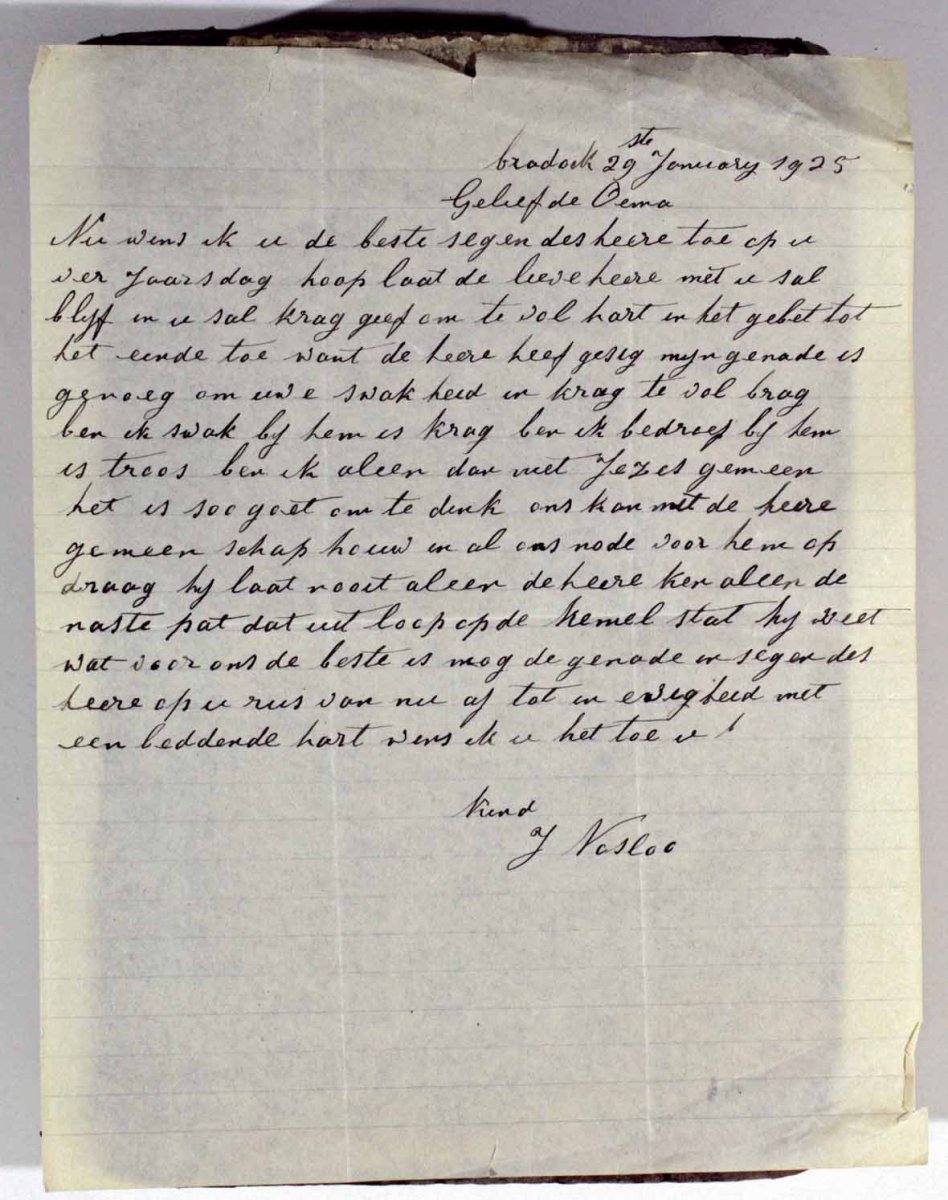 Cradock 29ste January 1925
Geliefde Oema
Nu wens ik u de beste segen des heere toe op u
ver Jaarsdag hoop laat de lieve heere met u sal
blyf en u sal krag geef om te vol hart in het gebet tot
het einde toe want de heere heef geseg myn genade is
genoeg om uwe swak heid in krag te vol brag
ben ik swak by hem is krag ben ik bedroef by hem
is troos ben ik aleen dan met Jezes gemeen
het is soo goet om te dink ons kan met de heere
gemeen schap houw en al ons node voor hem op
draag hy laat nooit aleen de heere ken aleen de
naste pat dat uit loop op de hemel stat hy weet
wat voor ons de beste is mog de genade en segen des
heere op u rus van nu af tot in ewigheid met
een beddende hart wens ik u het toe u
kind
J Vosloo